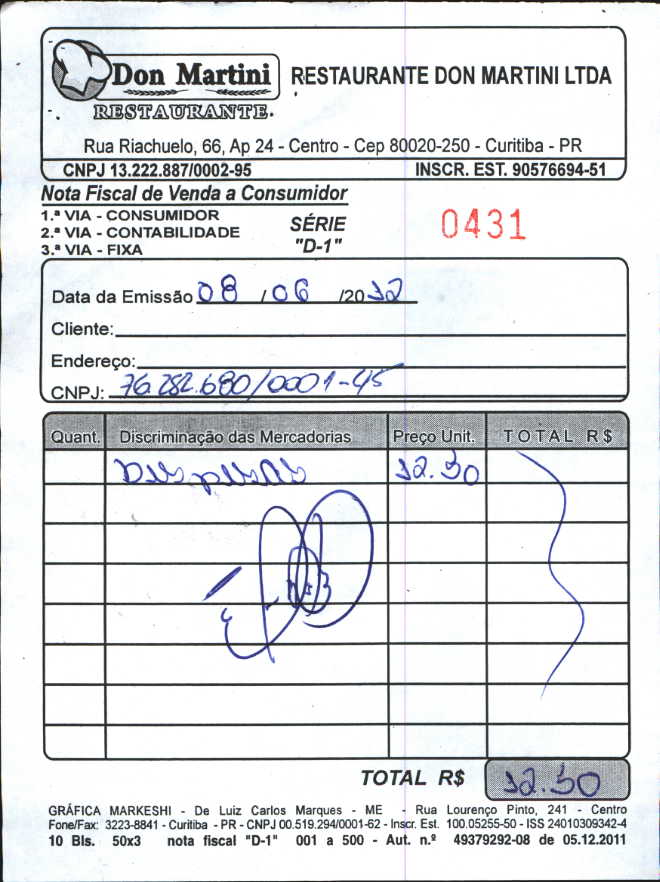 Don Martini
RESTAURANTE
RESTAURANTE DON MARTINI LTDA
Rua Riachuelo, 66, Ap 24 - Centro - Cep 80020-250 - Curitiba - PR
CNPJ 13.222.887/0002-95 INSCR. EST. 90576694-51
Nota Fiscal de Venda a Consumidor
1.ª VIA - CONSUMIDOR
2.ª VIA - CONTABILIDADE
3.ª VIA - FIXA
SÉRIE
"D-1"
0431
Data da Emissão 08 / 06 /2012
Cliente:
Endereço:
CNPJ: 76.282.680/0001-45
Quant. Discriminação das Mercadorias Preço Unit. TOTAL R$
Despesas 12.50
TOTAL R$ 12.50
GRÁFICA MARKESHI - De Luiz Carlos Marques - ME - Rua Lourenço Pinto, 241 - Centro
Fone/Fax: 3223-8841 - Curitiba - PR - CNPJ 00.519.294/0001-62 - Inscr. Est. 100.05255-50 - ISS 24010309342-4
10 Bls. 50x3 nota fiscal "D-1" 001 a 500 - Aut. n.º 49379292-08 de 05.12.2011